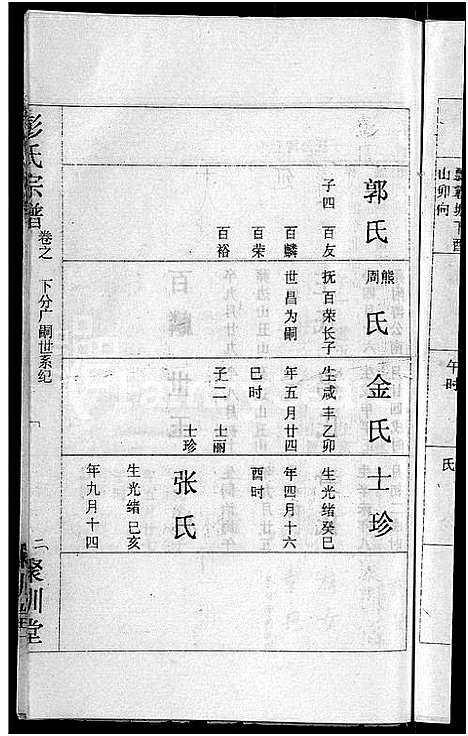 彭氏宗谱
卷之
下分广嗣世系纪
二
聚训堂
郭氏
子四 百友
百麟
百荣
百裕
熊周氏
抚百荣长子
世昌为嗣
金氏
生咸丰乙卯
年五月廿四
巳时
子二 士丽
士珍
士珍
生光绪癸巳
年四月十六
酉时
张氏
生光绪巳亥
年九月十四
山卯向
午时
氏